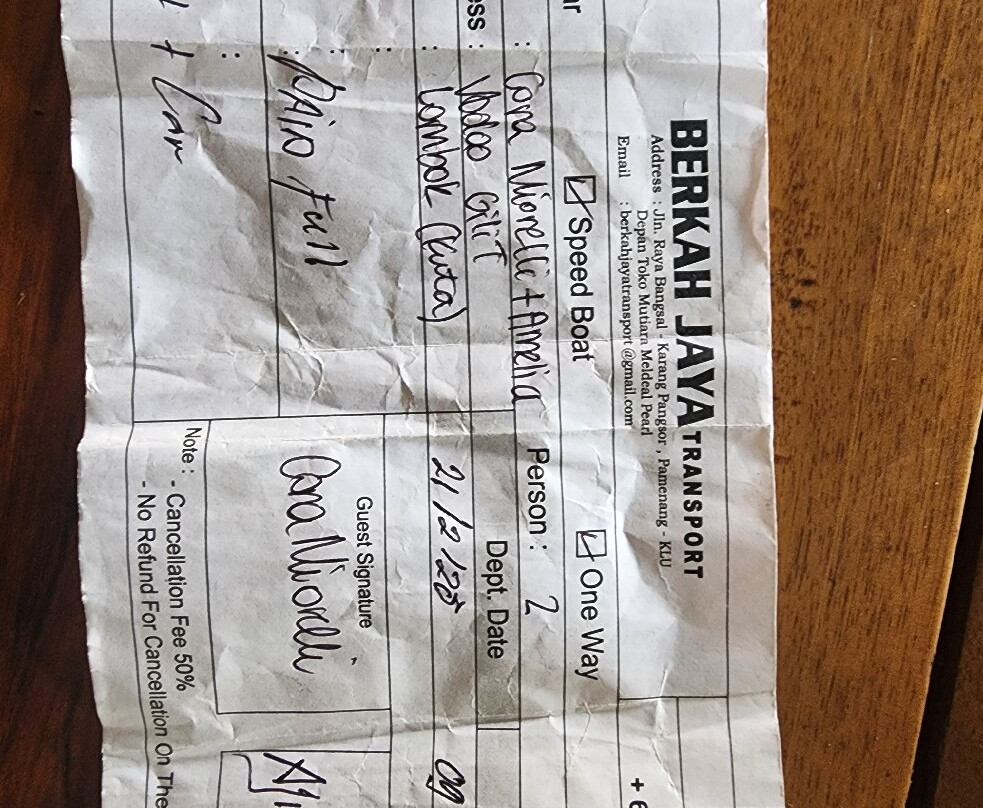 BERKAH JAYA TRANSPORT
Address : Jln. Raya Bangsal - Karang Pangsor, Pamenang - KLU
Depan Toko Mutiara Meldeal Pearl
Email : berkahjayatransport@gmail.com
+ 6
ar ☑ Speed Boat ☑ One Way
: Cona Niorelli + Amelia Person : 2
ess : Vodoo Gili T Dept. Date
: Lombok (Kuta) 21/2/25 09
:
:
: PAID Full Guest Signature
: Cona Niorelli
+ Car
Note : - Cancellation Fee 50%
- No Refund For Cancellation On The